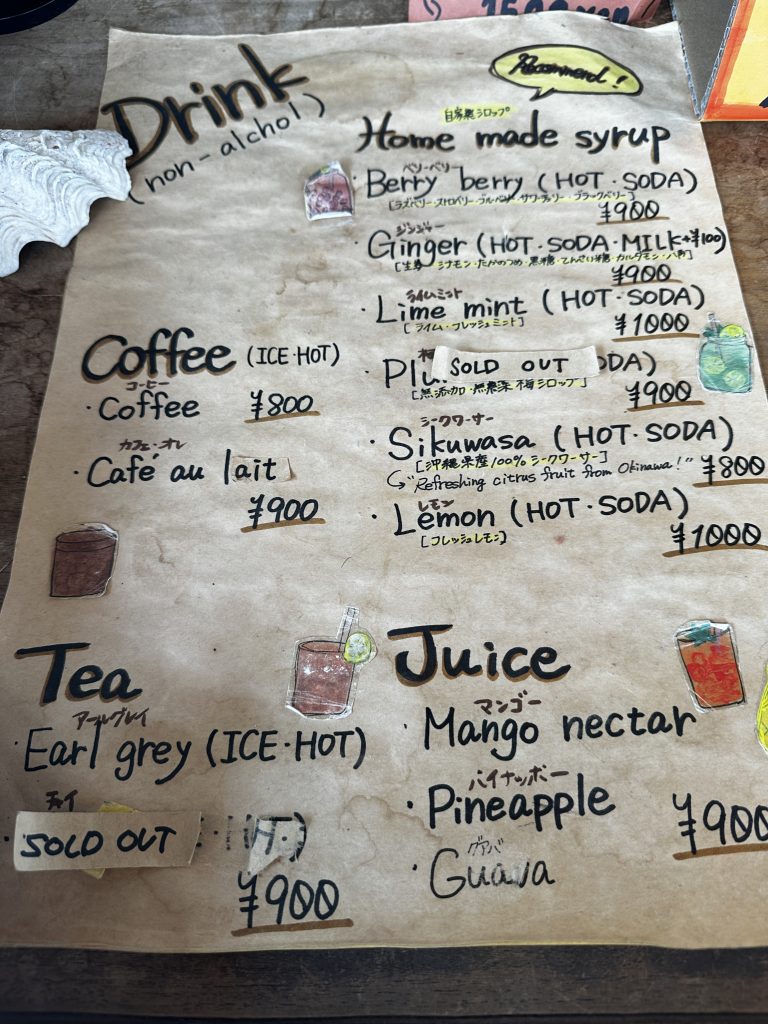 Drink
(non-alchol)
Recommend!
自家製シロップ
Home made syrup
ベリーベリー
・Berry berry (HOT・SODA)
[ラズベリー・ストロベリー・ブルーベリー・サワーチェリー・ブラックベリー]
¥900
ジンジャー
・Ginger (HOT・SODA・MILK+¥100)
[生姜・シナモン・たかのつめ・黒糖・てんさい糖・カルダモン・八角]
¥900
ライムミント
・Lime mint (HOT・SODA)
[ライム・フレッシュミント]
¥1000
SOLD OUT
[無添加・無農薬 梅シロップ]
¥900
シークワーサー
・Sikuwasa (HOT・SODA)
[沖縄県産100% シークワーサー]
"Refreshing citrus fruit from Okinawa!"
¥800
レモン
・Lemon (HOT・SODA)
[フレッシュレモン]
¥1000
Coffee (ICE・HOT)
コーヒー
・Coffee ¥800
カフェ・オレ
・Café au lait
¥900
Tea
アールグレイ
・Earl grey (ICE・HOT)
チャイ
・SOLD OUT
¥900
Juice
マンゴー
・Mango nectar
パイナッポー
・Pineapple
¥900
グァバ
・Guava